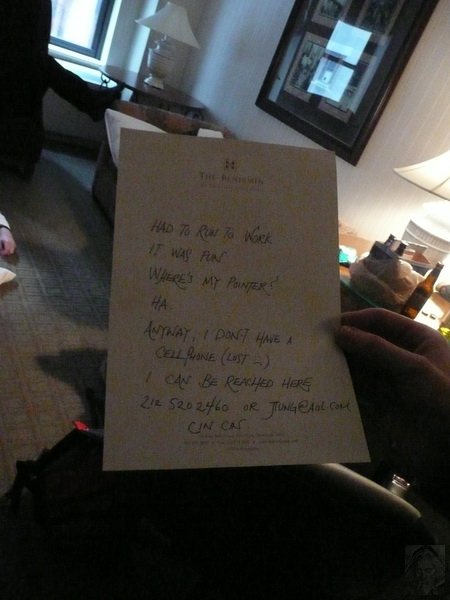 THE BENJAMIN
HAD TO RUN TO WORK
IT WAS FUN
WHERE'S MY POINTER?
HA.
ANYWAY, I DON'T HAVE A
CELLPHONE (LOST :-)
I CAN BE REACHED HERE
212 520 2460 OR JIUNG@AOL.COM
CIN CIN